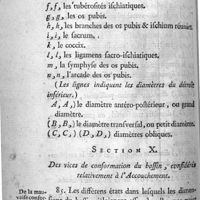 f, f, les tubérosités ischiatiques.
g, g, les os pubis.
h, h, les branches des os pubis & ischium réunies.
i, i, le sacrum.
k, le coccix.
l, l, les ligamens sacro-ischiatiques.
m, la symphyse des os pubis.
n, n, l'arcade des os pubis.
(Les lignes indiquent les diametres du détroit
inférieur.)
A, A, le diamètre antéro-postérieur, ou grand
diamètre.
(B, B,) le diamètre transversal, ou petit diamètre.
(C, C,) (D, D,) diamètres obliques.
SECTION X.
Des vices de conformation du bassin, considérés
relativement à l'Accouchement.
De la mau-
vaise confor-
85. Les différens états dans lesquels les dimen-